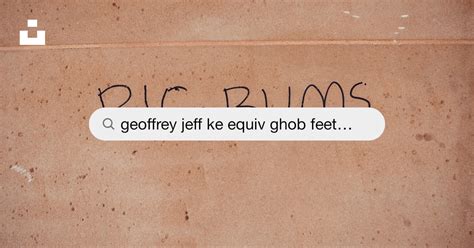 BUMS
geoffrey jeff ke equiv ghob feet…